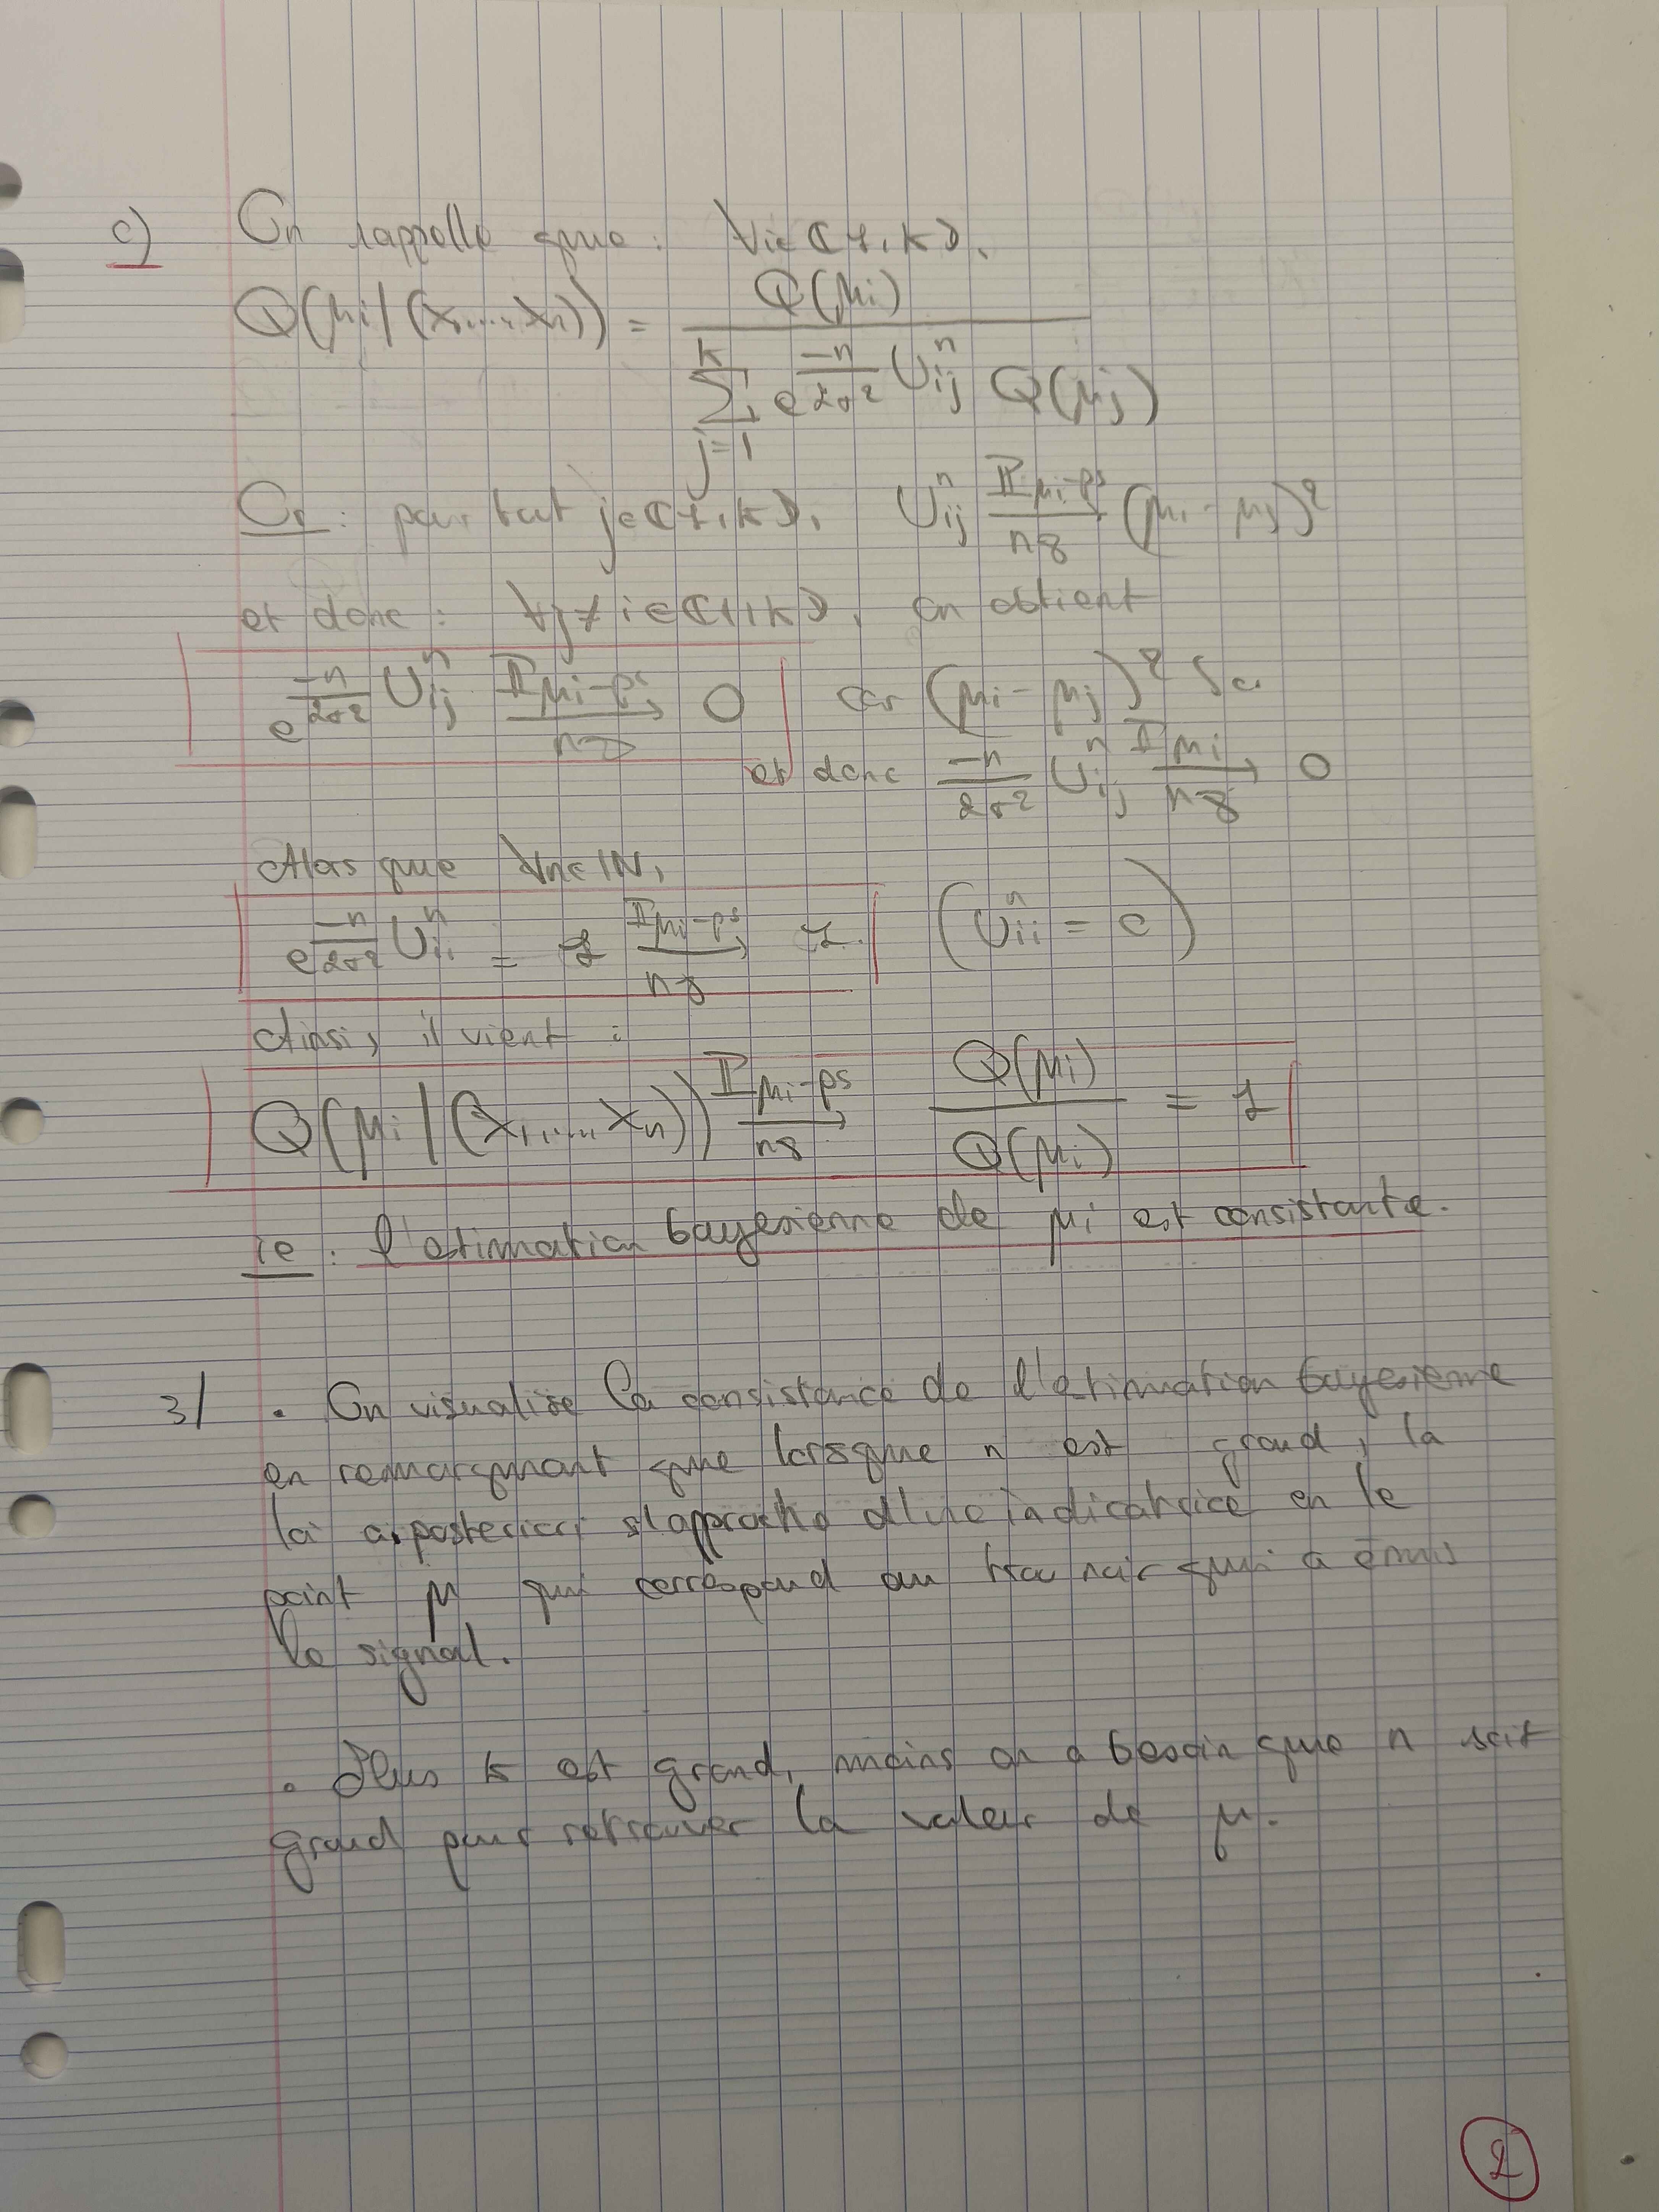 c) On rappelle que : ∀i∈⟦1,k⟧,
Q(μi|(x1,...,xn)) = Q(μi) / ∑_{j=1}^{k} e^{-n/2σ² U_{ij}^n} Q(μj)
Or : pour tout j∈⟦1,k⟧, U_{ij}^n →_{n∞}^{ℙμi-ps} (μi - μj)²
et donc : ∀j≠i∈⟦1,k⟧, on obtient
e^{-n/2σ² U_{ij}^n} →_{n∞}^{ℙμi-ps} 0 car (μi - μj)² >0
et donc -n/2σ² U_{ij}^n →_{n∞}^{ℙμi} 0
Alors que ∀n∈ℕ,
e^{-n/2σ² U_{ii}^n} = 1 →_{n∞}^{ℙμi-ps} 1. (U_{ii}^n = 0)
Ainsi, il vient :
Q(μi|(x1,...,xn)) →_{n∞}^{ℙμi-ps} Q(μi)/Q(μi) = 1
ie : l'estimation bayesienne de μi est consistante.
3/ • On visualise la consistance de l'estimation bayesienne
en remarquant que lorsque n est grand, la
loi a posteriori s'approche d'une indicatrice en le
point μ qui correspond au trou noir qui a émis
le signal.
• Plus k est grand, moins on a besoin que n soit
grand pour retrouver la valeur de μ.
2